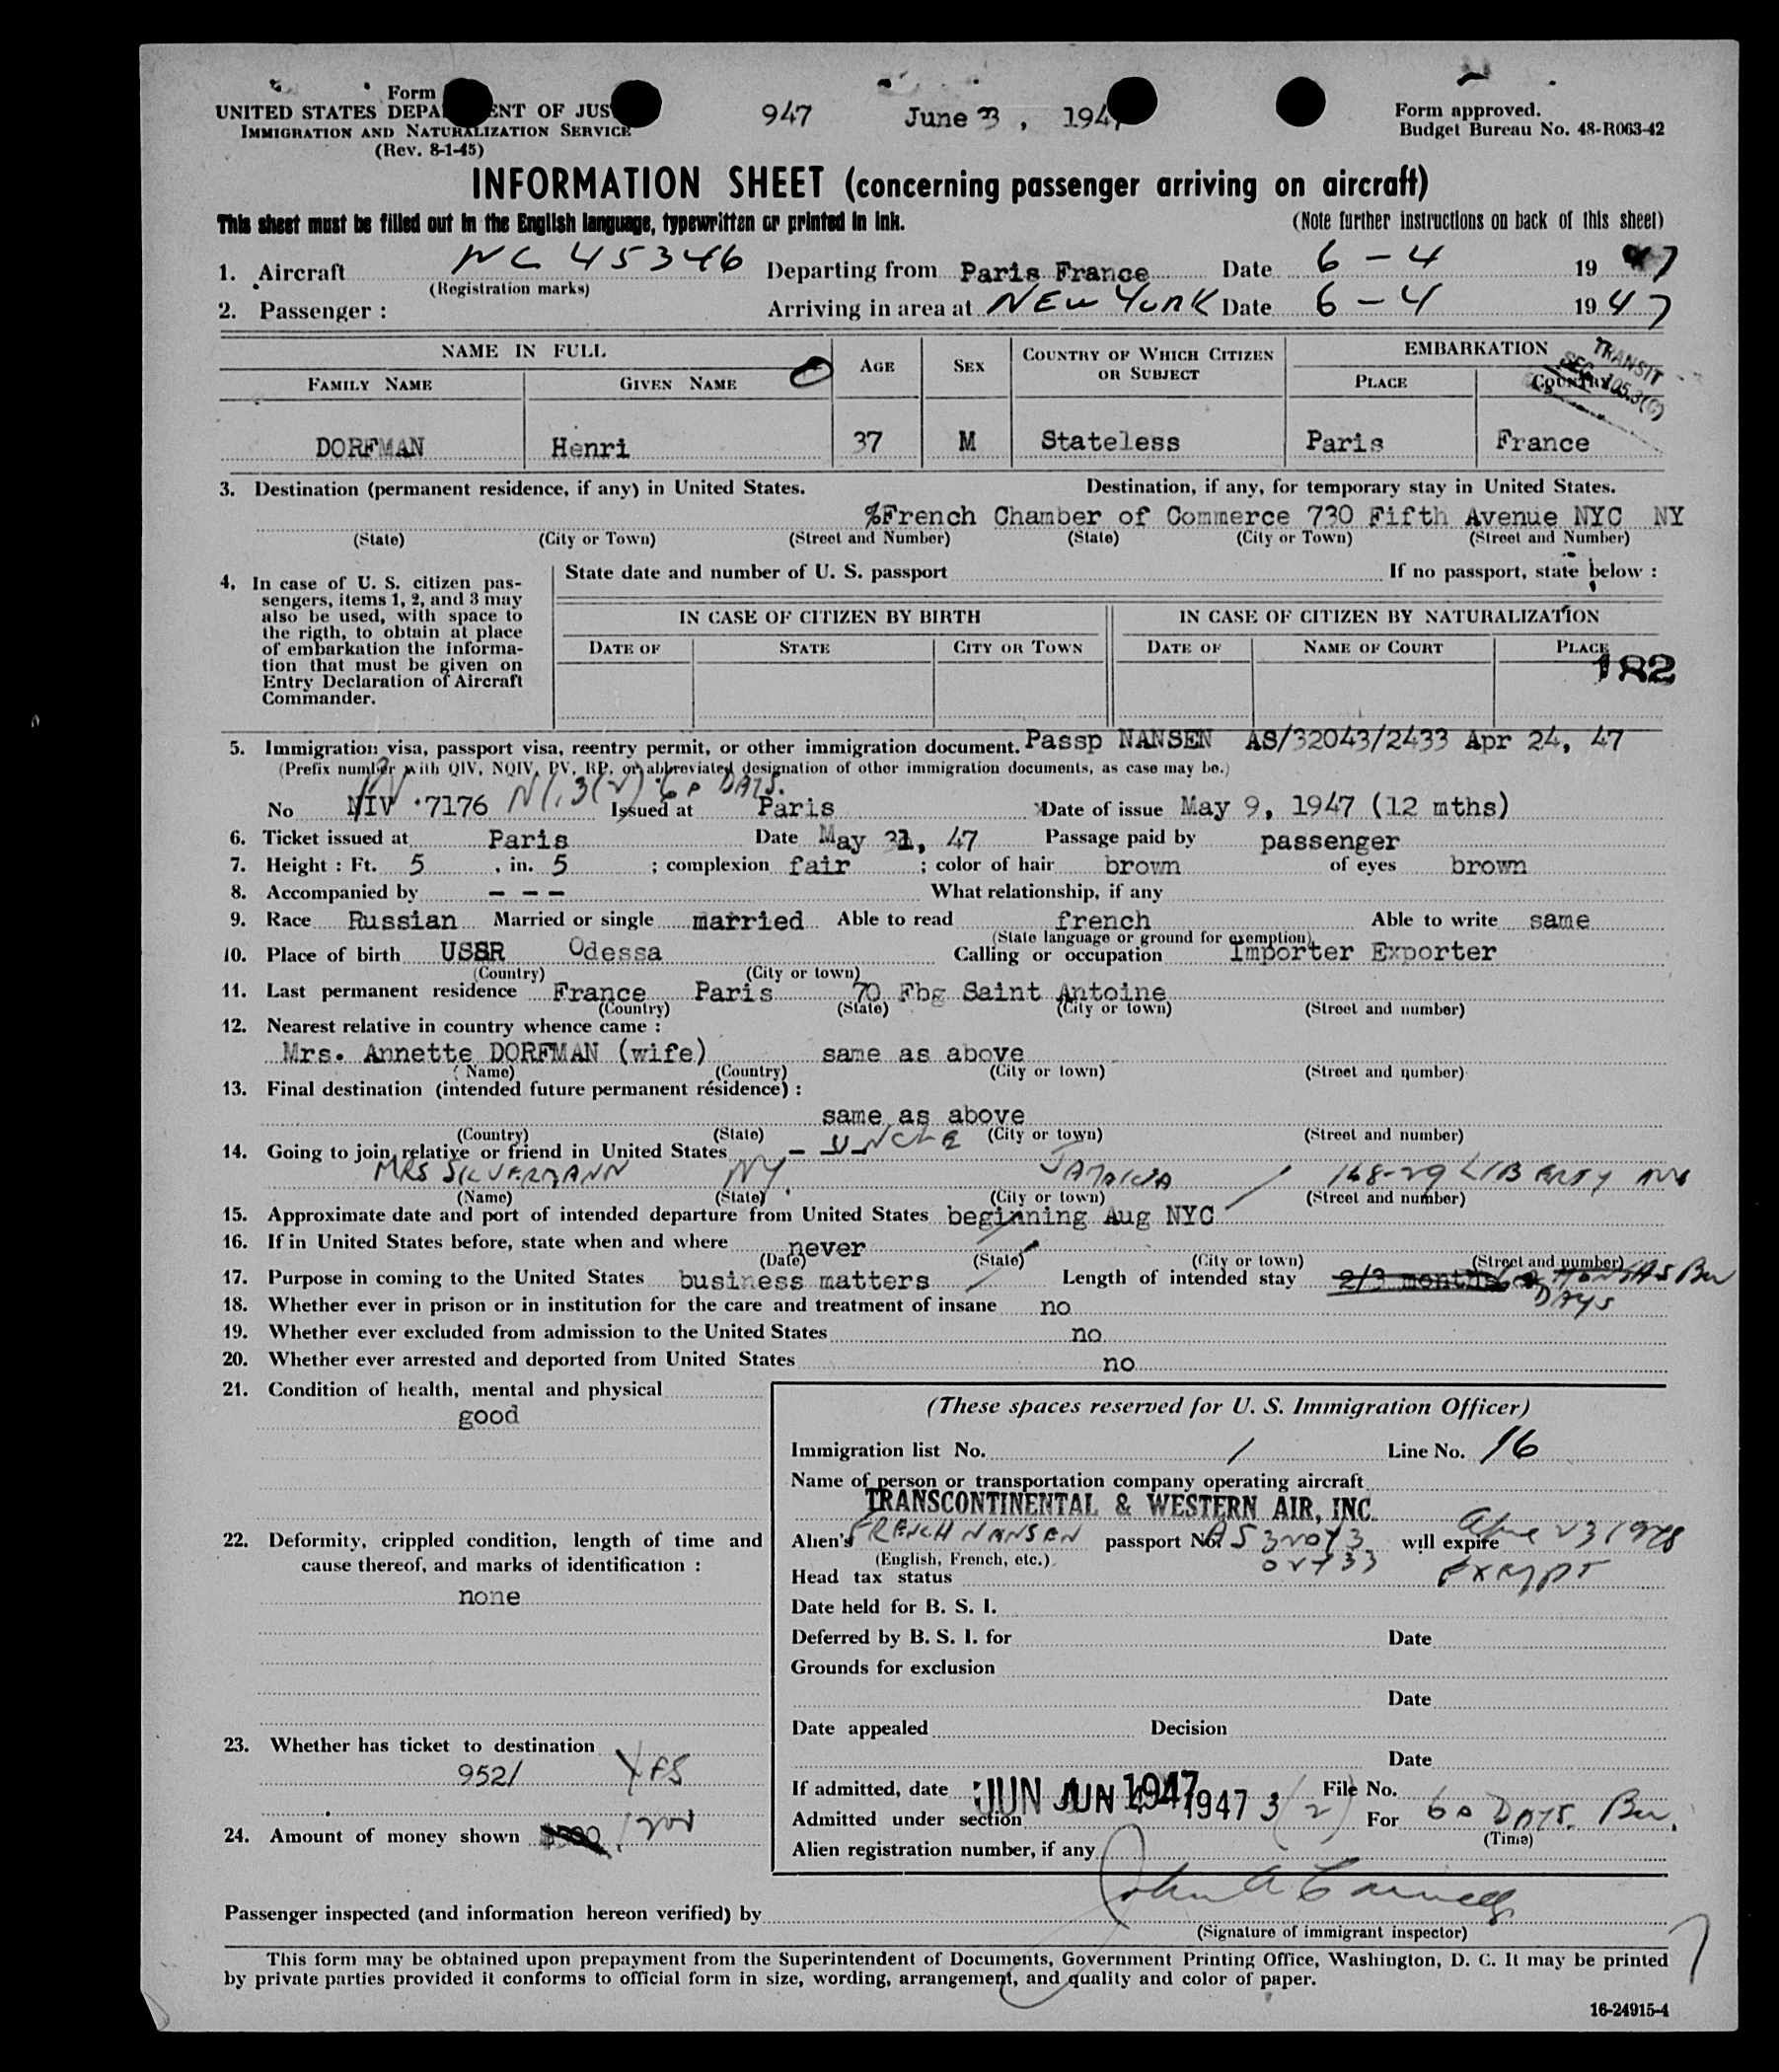 Form
UNITED STATES DEPA ENT OF JUS
IMMIGRATION AND NATURALIZATION SERVICE
(Rev. 8-1-45)
947 June 3, 194
Form approved.
Budget Bureau No. 48-R063-42
INFORMATION SHEET (concerning passenger arriving on aircraft)
This sheet must be filled out in the English language, typewritten or printed in ink. (Note further instructions on back of this sheet)
1. Aircraft NC 45346 Departing from Paris France Date 6-4 1947
(Registration marks)
2. Passenger : Arriving in area at NEW YORK Date 6-4 1947
NAME IN FULL AGE SEX COUNTRY OF WHICH CITIZEN OR SUBJECT EMBARKATION
FAMILY NAME GIVEN NAME PLACE COUNTRY
TRANSIT
SEC. 105.3(C)
DORFMAN Henri 37 M Stateless Paris France
3. Destination (permanent residence, if any) in United States. Destination, if any, for temporary stay in United States.
%French Chamber of Commerce 730 Fifth Avenue NYC NY
(State) (City or Town) (Street and Number) (State) (City or Town) (Street and Number)
4. In case of U. S. citizen pas-
sengers, items 1, 2, and 3 may
also be used, with space to
the rigth, to obtain at place
of embarkation the informa-
tion that must be given on
Entry Declaration of Aircraft
Commander.
State date and number of U. S. passport If no passport, state below :
IN CASE OF CITIZEN BY BIRTH IN CASE OF CITIZEN BY NATURALIZATION
DATE OF STATE CITY OR TOWN DATE OF NAME OF COURT PLACE
182
5. Immigration visa, passport visa, reentry permit, or other immigration document. Passp NANSEN AS/32043/2433 Apr 24, 47
(Prefix number with QIV, NQIV, PV, RP, or abbreviated designation of other immigration documents, as case may be.)
No NIV 7176 3(2) 60 DAYS. Issued at Paris Date of issue May 9, 1947 (12 mths)
6. Ticket issued at Paris Date May 31, 47 Passage paid by passenger
7. Height : Ft. 5 , in. 5 ; complexion fair ; color of hair brown of eyes brown
8. Accompanied by - - - What relationship, if any
9. Race Russian Married or single married Able to read french Able to write same
(State language or ground for exemption)
10. Place of birth USSR Odessa Calling or occupation Importer Exporter
(Country) (City or town)
11. Last permanent residence France Paris 70 Fbg Saint Antoine
(Country) (State) (City or town) (Street and number)
12. Nearest relative in country whence came :
Mrs. Annette DORFMAN (wife) same as above
(Name) (Country) (City or town) (Street and number)
13. Final destination (intended future permanent résidence) :
same as above
(Country) (State) (City or town) (Street and number)
14. Going to join relative or friend in United States - UNCLE
MRS SILVERMANN NY. JAMAICA 168-29 LIBERTY AVE
(Name) (State) (City or town) (Street and number)
15. Approximate date and port of intended departure from United States beginning Aug NYC
16. If in United States before, state when and where never
(Date) (State) (City or town) (Street and number)
17. Purpose in coming to the United States business matters Length of intended stay 2/3 months 60 DAYS
18. Whether ever in prison or in institution for the care and treatment of insane no
19. Whether ever excluded from admission to the United States no
20. Whether ever arrested and deported from United States no
21. Condition of health, mental and physical
good
22. Deformity, crippled condition, length of time and
cause thereof, and marks of identification :
none
23. Whether has ticket to destination
952/ YES
24. Amount of money shown
(These spaces reserved for U. S. Immigration Officer)
Immigration list No. 1 Line No. 16
Name of person or transportation company operating aircraft
TRANSCONTINENTAL & WESTERN AIR, INC.
Alien's FRENCH NANSEN passport No. AS 32043 will expire 23 1948
(English, French, etc.) 02433
Head tax status EXEMPT
Date held for B. S. I.
Deferred by B. S. I. for Date
Grounds for exclusion
Date
Date appealed Decision
Date
If admitted, date JUN 4 1947 File No.
Admitted under section 3(2) For 60 DAYS.
(Time)
Alien registration number, if any
Passenger inspected (and information hereon verified) by
(Signature of immigrant inspector)
This form may be obtained upon prepayment from the Superintendent of Documents, Government Printing Office, Washington, D. C. It may be printed
by private parties provided it conforms to official form in size, wording, arrangement, and quality and color of paper.
16-24915-4